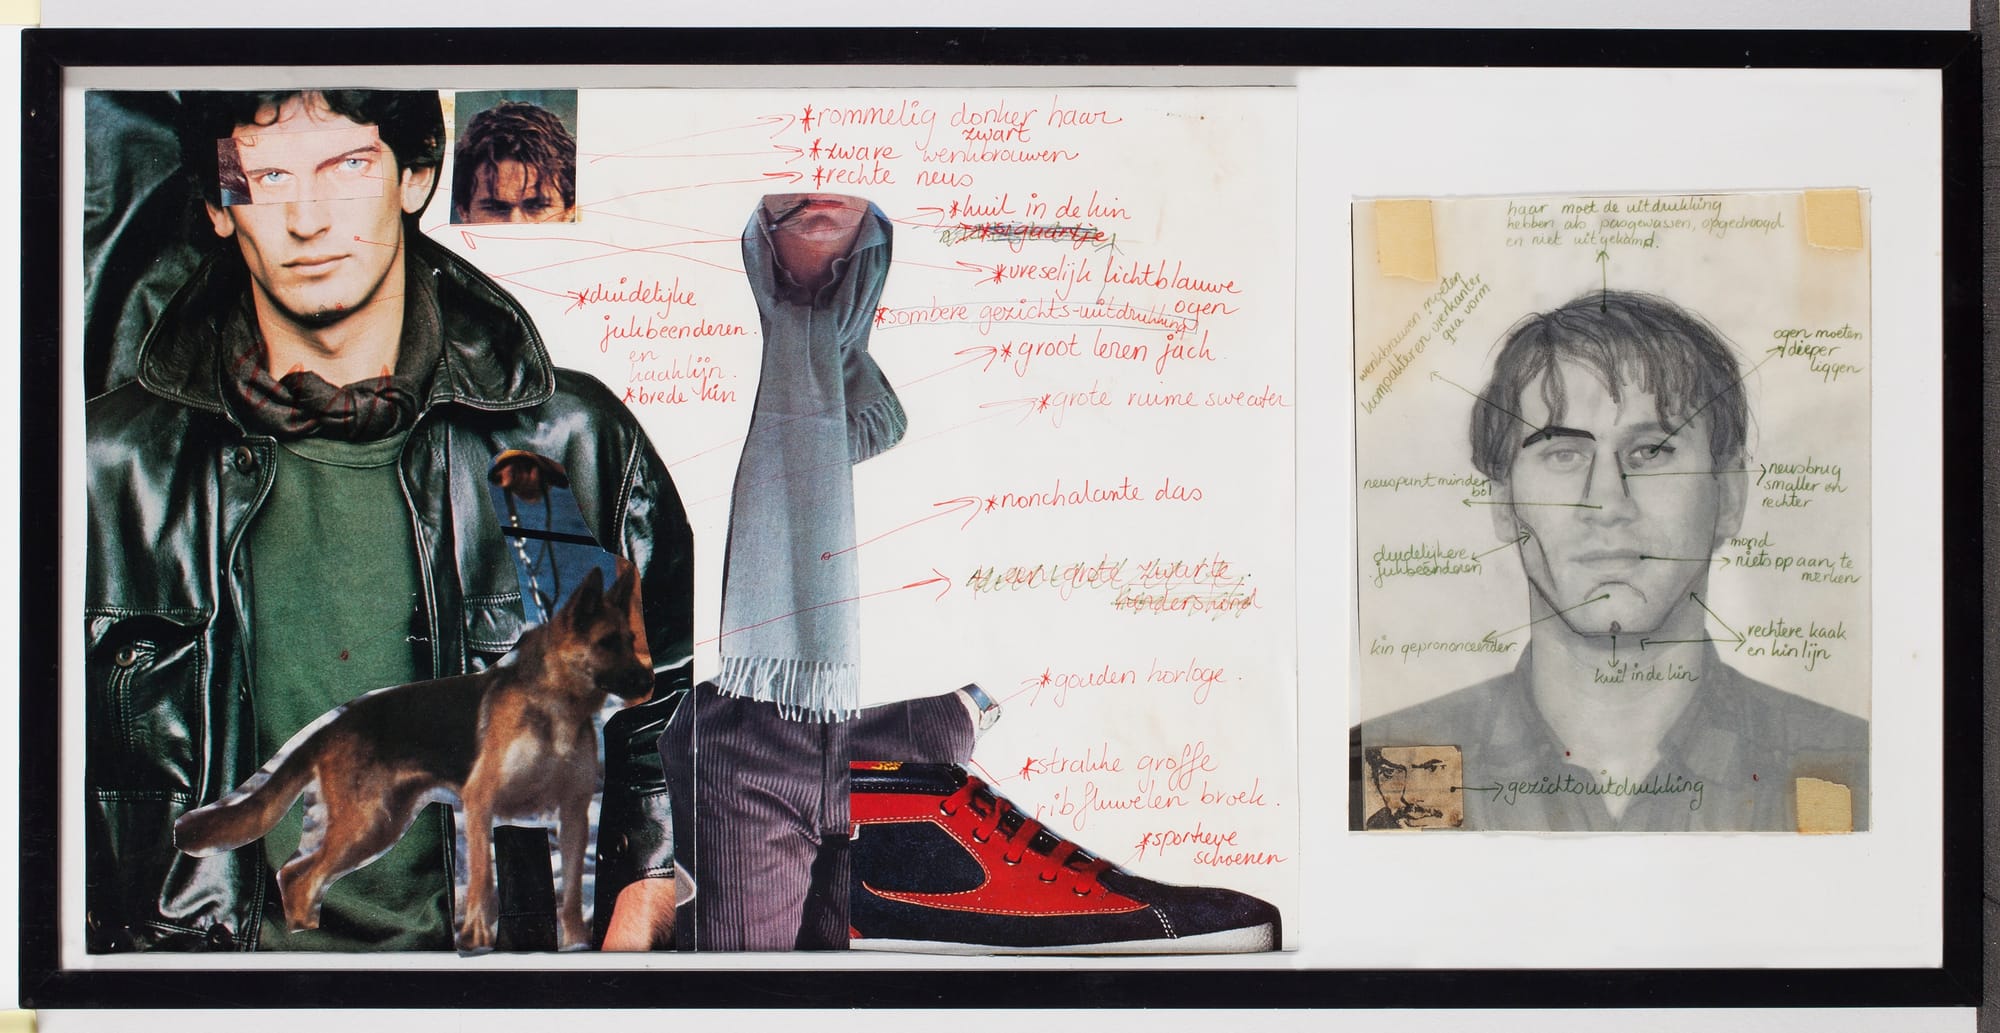 *rommelig donker haar
zwart
*zware wenkbrouwen
*rechte neus
*kuil in de kin
sigaartje
*vreselijk lichtblauwe
ogen
*sombere gezichts-uitdrukking
*groot leren jack
*grote ruime sweater
*nonchalante das
een grote zwarte
hondershond
*gouden horloge.
*strakke groffe
ribfluwelen broek.
*sportieve
schoenen
*duidelijke
jukbeenderen.
en
kaaklijn.
*brede kin
haar moet de uitdrukking
hebben als pasgewassen, opgedroogd
en niet uitgekamd.
wenkbrouwen moeten
kompakter en vierkanter
qua vorm
ogen moeten
dieper
liggen
neuspunt minder
bol
neusbrug
smaller en
rechter
duidelijkere
jukbeenderen
mond
niets op aan te
merken
kin geprononceerder.
kuil in de kin
rechtere kaak
en kin lijn
gezichtsuitdrukking